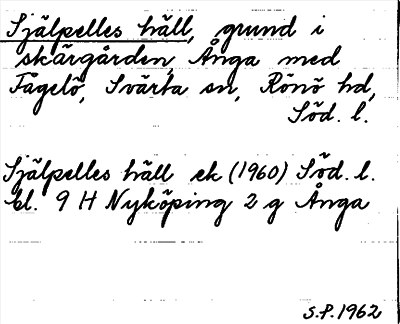 Själpelles häll, grund i
skärgården, Ånga med
Fågelö, Svärta sn, Rönö hd,
Söd. l.
Själpelles häll ek (1960) Söd. l.
bl. 9 H Nyköping 2 g Ånga
S.P. 1962